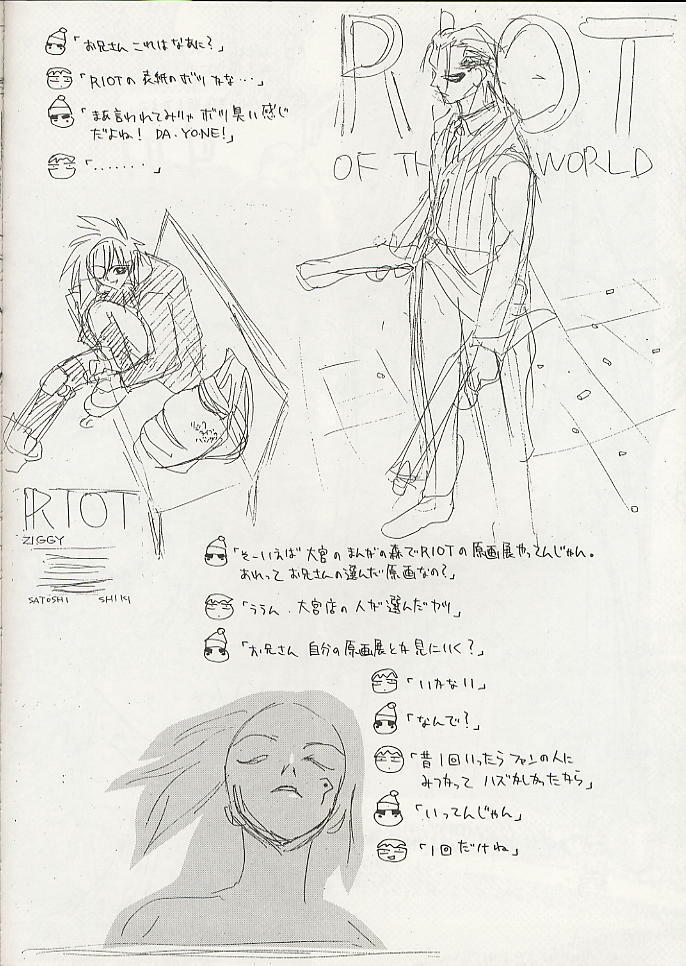 「お兄さん これはなあに？」
「RIOTの表紙のボツかな…」
「まあ言われてみりゃボツ臭い感じ
だよね！ DA・YONE!」
「……」
RIOT
OF THE WORLD
RIOT
ZIGGY
SATOSHI SHIKI
「そーいえば大宮のまんがの森でRIOTの原画展やってんじゃん。
あれってお兄さんの選んだ原画なの？」
「ううん、大宮店の人が選んだヤツ」
「お兄さん 自分の原画展とか見にいく？」
「いかない」
「なんで？」
「昔1回いったらファンの人に
みつかって ハズかしかったから」
「いってんじゃん」
「1回だけね」